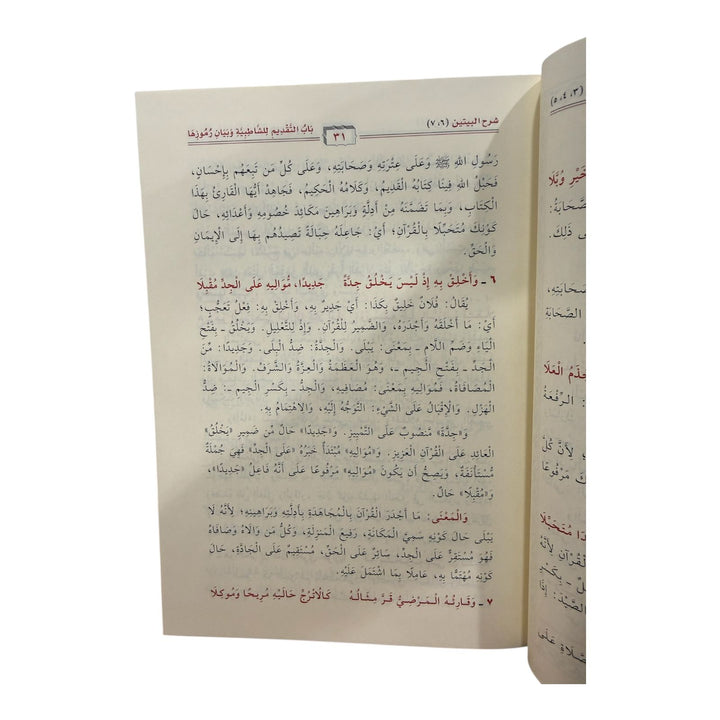 شرح البيتين (٦، ٧)
٣١
بَابُ التَّقْدِيمِ لِلشَّاطِبِيَّةِ وَبَيَانِ رُمُوزِهَا
رَسُولِ اللهِ ﷺ وَعَلَى عِتْرَتِهِ وَصَحَابَتِهِ، وَعَلَى كُلِّ مَن تَبِعَهُم بِإِحْسَانٍ،
فَحَبْلُ اللهِ فِينَا كِتَابُهُ الْقَدِيمُ، وَكَلَامُهُ الْحَكِيمُ، فَجَاهِدْ أَيُّهَا الْقَارِئُ بِهَذَا
الْكِتَابِ، وَبِمَا تَضَمَّنَهُ مِنْ أَدِلَّةٍ وَبَرَاهِينَ مَكَائِدَ خُصُومِهِ وَأَعْدَائِهِ، حَالَ
كَوْنِكَ مُتَحَبِّلًا بِالْقُرْآنِ؛ أَيْ: جَاعِلَهُ حِبَالَةً تَصِيدُهُم بِهَا إِلَى الْإِيمَانِ
وَالْحَقِّ.
٦ ـ وَأَخْلِقْ بِهِ إِذْ لَيْسَ يَخْلُقُ جِدَّةً جَدِيدًا، مُوَالِيهِ عَلَى الْجِدِّ مُقْبِلَا
يُقَالُ: فُلَانٌ خَلِيقٌ بِكَذَا: أَيْ جَدِيرٌ بِهِ، وَأَخْلِقْ بِهِ: فِعْلُ تَعَجُّبٍ؛
أَيْ: مَا أَخْلَقَهُ وَأَجْدَرَهُ، وَالضَّمِيرُ لِلْقُرْآنِ. وَإِذْ لِلتَّعْلِيلِ. وَيَخْلُقُ ـ بِفَتْحِ
الْيَاءِ وَضَمِّ اللَّامِ ـ بِمَعْنَى: يَبْلَى. وَالْجِدَّةُ: ضِدُّ الْبَلَى. وَجَدِيدًا: مِّنَ
الْجَدِّ ـ بِفَتْحِ الْجِيمِ ـ، وَهُوَ الْعَظَمَةُ وَالْعِزَّةُ وَالشَّرَفُ. وَالْمُوَالَاةُ:
الْمُصَافَاةُ، فَمُوَالِيهِ بِمَعْنَى: مُصَافِيهِ، وَالْجِدُّ ـ بِكَسْرِ الْجِيمِ ـ: ضِدُّ
الْهَزْلِ. وَالْإِقْبَالُ عَلَى الشَّيْءِ: التَّوَجُّهُ إِلَيْهِ، وَالِاهْتِمَامُ بِهِ.
وَ«جِدَّةً» مَنصُوبٌ عَلَى التَّمْيِيزِ. وَ«جَدِيدًا» حَالٌ مِّن ضَمِيرِ «يَخْلُقُ»
الْعَائِدِ عَلَى الْقُرْآنِ الْعَزِيزِ. وَ«مُوَالِيهِ» مُبْتَدَأٌ خَبَرُهُ «عَلَى الْجِدِّ» فَهِيَ جُمْلَةٌ
مُسْتَأْنَفَةٌ، وَيَصِحُّ أَن يَكُونَ «مُوَالِيهِ» مَرْفُوعًا عَلَى أَنَّهُ فَاعِلُ «جَدِيدًا»،
وَ«مُقْبِلًا» حَالٌ.
وَالْمَعْنَى: مَا أَجْدَرَ الْقُرْآنَ بِالْمُجَاهَدَةِ بِأَدِلَّتِهِ وَبَرَاهِينِهِ؛ لِأَنَّهُ لَا
يَبْلَى حَالَ كَوْنِهِ سَمِيَّ الْمَكَانَةِ، رَفِيعَ الْمَنزِلَةِ، وَكُلُّ مَن وَالَاهُ وَصَافَاهُ
فَهُوَ مُسْتَقِرٌّ عَلَى الْجِدِّ، سَائِرٌ عَلَى الْحَقِّ، مُسْتَقِيمٌ عَلَى الْجَادَّةِ، حَالَ
كَوْنِهِ مُهْتَمًّا بِهِ، عَامِلًا بِمَا اشْتَمَلَ عَلَيْهِ.
٧ ـ وَقَارِئُهُ الْمَرْضِيُّ قَرَّ مِثَالُهُ كَالْاتْرُجِّ حَالَيْهِ مُرِيحًا وَمُوكِلَا
(٣، ٤، ٥)
خَيْرٍ وُبَّلَا
صَحَابَةُ:
ذَلِكَ.
صَحَابَتِهِ،
الصَّحَابَةِ
الْعَلَا
الرِّفْعَةُ
لِأَنَّ كُلَّ
مَرْفُوعًا
مُتَحَبِّلَا
لِأَنَّهُ
بِكَسْرِ
الصَّيْدَ: إِذَا
عَلَى